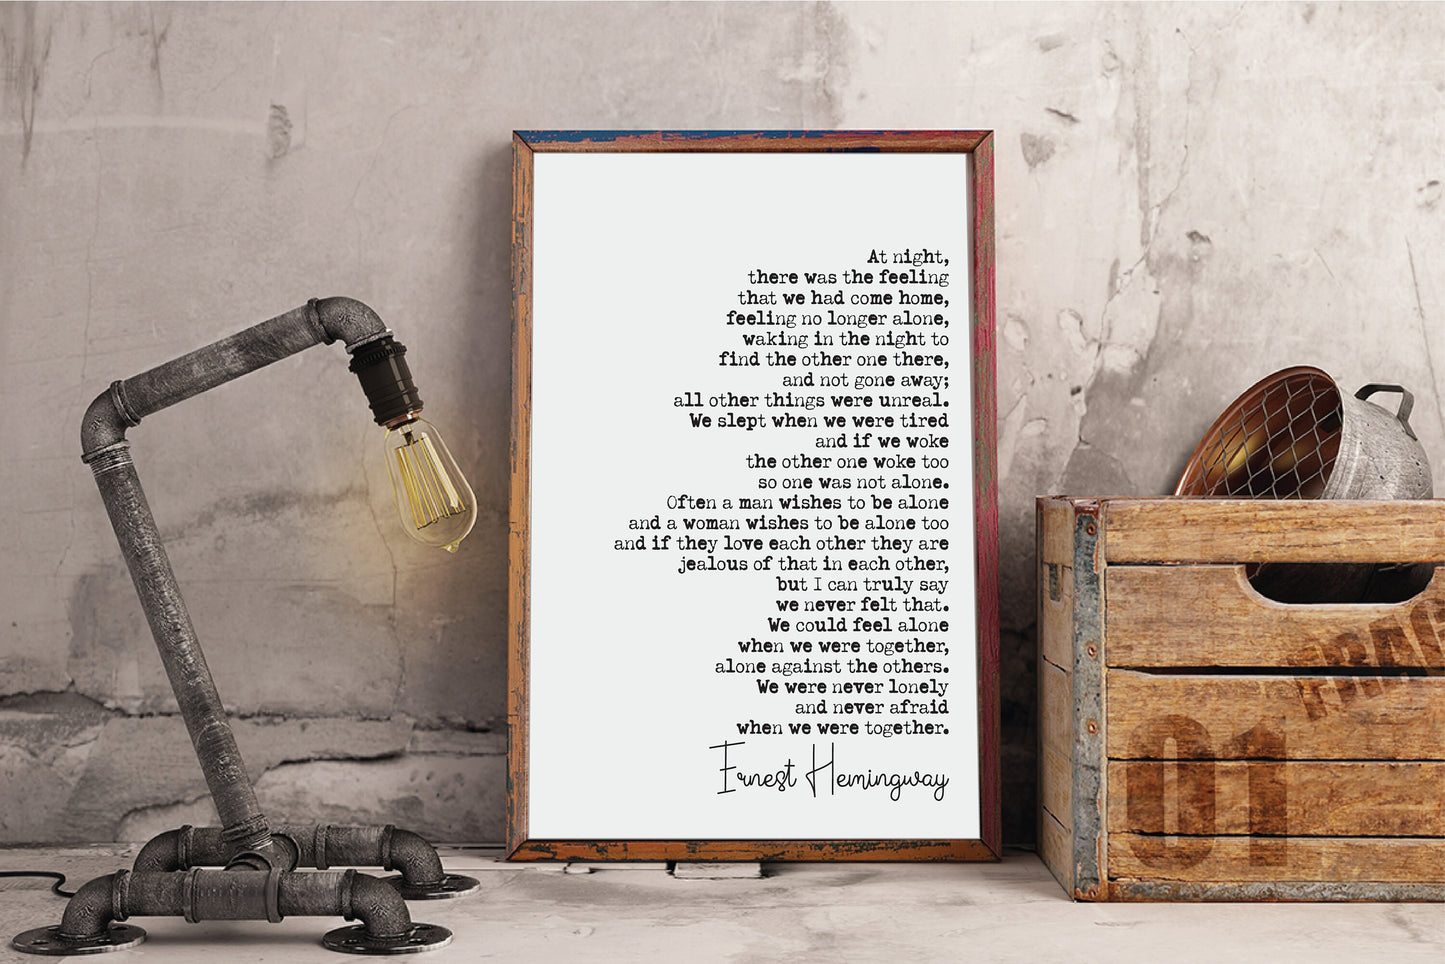 At night,
there was the feeling
that we had come home,
feeling no longer alone,
waking in the night to
find the other one there,
and not gone away;
all other things were unreal.
We slept when we were tired
and if we woke
the other one woke too
so one was not alone.
Often a man wishes to be alone
and a woman wishes to be alone too
and if they love each other they are
jealous of that in each other,
but I can truly say
we never felt that.
We could feel alone
when we were together,
alone against the others.
We were never lonely
and never afraid
when we were together.
Ernest Hemingway
FRAG
01